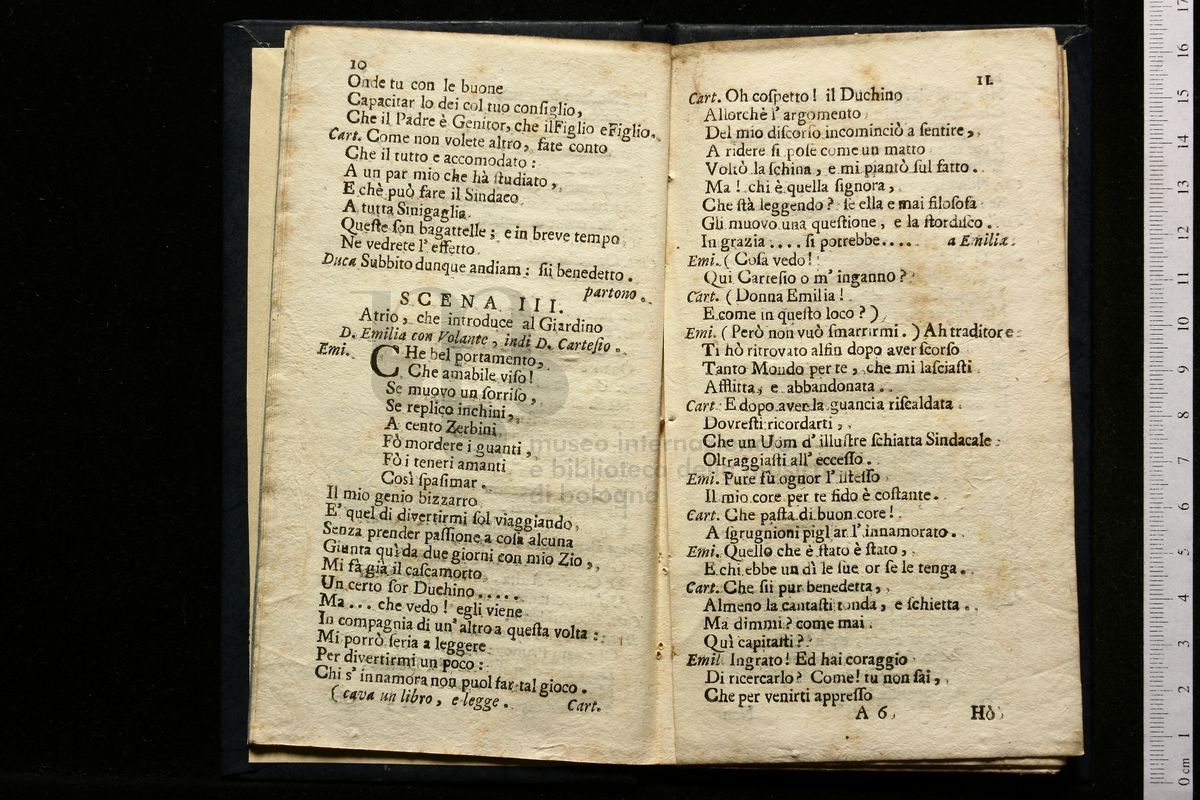 10
Onde tu con le buone
Capacitar lo dei col tuo consiglio,
Che il Padre è Genitor, che ilFiglio eFiglio.
Cart. Come non volete altro, fate conto
Che il tutto e accomodato:
A un par mio che hà studiato,
E chè può fare il Sindaco
A tutta Sinigaglia
Queste son bagattelle; e in breve tempo
Ne vedrete l'effetto
Duca Subbito dunque andiam: sii benedetto.
partono.
SCENA III.
Atrio, che introduce al Giardino
D. Emilia con Volante, indi D. Cartesio.
Emi. CHe bel portamento,
Che amabile viso!
Se muovo un sorriso,
Se replico inchini,
A cento Zerbini
Fò mordere i guanti,
Fò i teneri amanti
Così spasimar.
Il mio genio bizzarro
E' quel di divertirmi sol viaggiando,
Senza prender passione a cosa alcuna
Giunta quì da due giorni con mio Zio,
Mi fà già il cascamorto
Un certo sor Duchino.....
Ma... che vedo! egli viene
In compagnia di un'altro a questa volta:
Mi porrò seria a leggere
Per divertirmi un poco:
Chi s'innamora non puol far tal gioco.
(cava un libro, e legge.
Cart.
11
Cart. Oh cospetto! il Duchino
Allorchè l'argomento
Del mio discorso incominciò a sentire,
A ridere si pose come un matto
Voltò la schina, e mi piantò sul fatto.
Ma! chi è quella signora,
Che stà leggendo? se ella e mai filosofa
Gli muovo una questione, e la stordisco.
In grazia.... si potrebbe..... a Emilia.
Emi. (Cosa vedo!
Qui Cartesio o m'inganno?
Cart. (Donna Emilia!
E come in questo loco?)
Emi. (Però non vuò smarrirmi.) Ah traditore
Ti hò ritrovato alfin dopo aver scorso
Tanto Mondo per te, che mi lasciasti
Afflitta, e abbandonata.
Cart. E dopo aver la guancia riscaldata
Dovresti ricordarti,
Che un Uom d'illustre schiatta Sindacale
Oltraggiasti all'eccesso.
Emi. Pure fù ognor l'istesso
Il mio core per te fido è costante.
Cart. Che pasta di buon core!
A sgrugnioni pigliar l'innamorato.
Emi. Quello che è stato è stato,
E chi ebbe un dì le sue or se le tenga.
Cart. Che sii pur benedetta,
Almeno la cantasti tonda, e schietta.
Ma dimmi? come mai
Quì capitasti?
Emil. Ingrato! Ed hai coraggio
Di ricercarlo? Come! tu non sai,
Che per venirti appresso
A 6
Hò
museo interna
e biblioteca della
di bologna